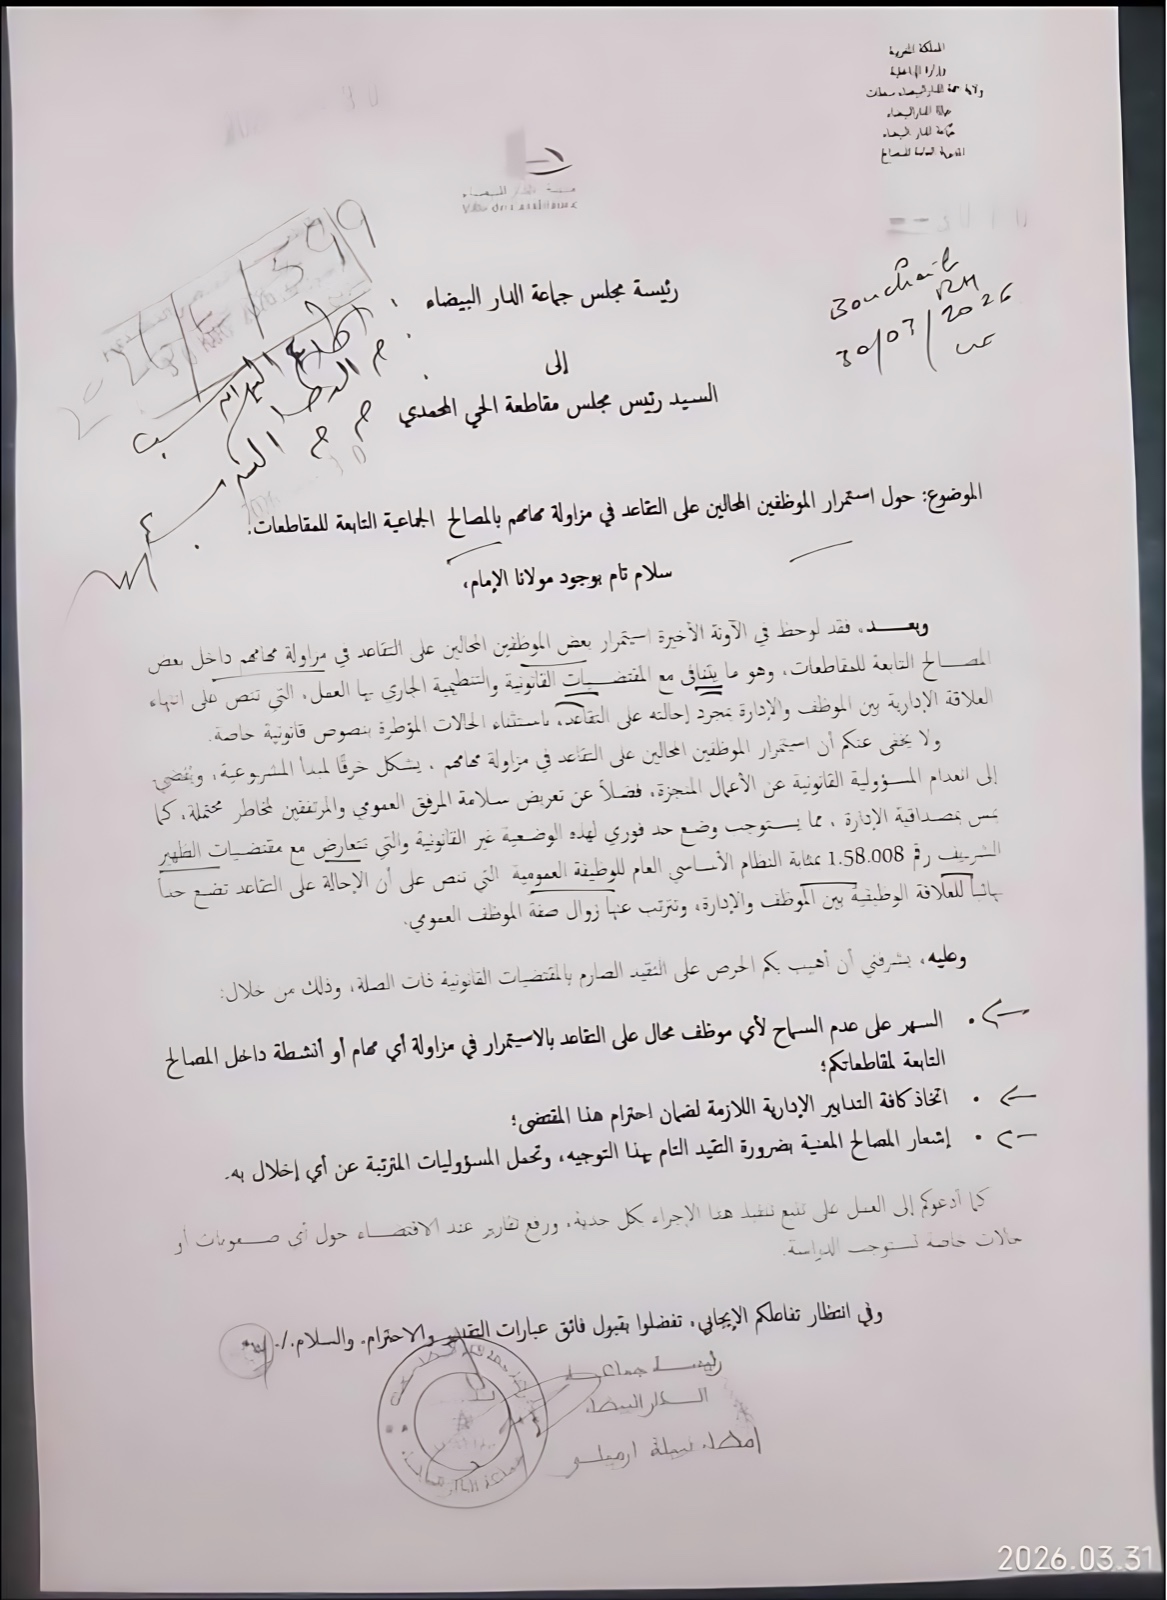 المملكة المغربية
وزارة الداخلية
ولاية جهة الدار البيضاء سطات
عمالة الدار البيضاء
جماعة الدار البيضاء
المديرية العامة للمصالح
مدينة الدار البيضاء
Ville de Casablanca
رئيسة مجلس جماعة الدار البيضاء
إلى
السيد رئيس مجلس مقاطعة الحي المحمدي
30/03/2026
الموضوع: حول استمرار الموظفين المحالين على التقاعد في مزاولة مهامهم بالمصالح الجماعية التابعة للمقاطعات.
سلام تام بوجود مولانا الإمام،
وبعـــد، فقد لوحظ في الآونة الأخيرة استمرار بعض الموظفين المحالين على التقاعد في مزاولة مهامهم داخل بعض
المصالح التابعة للمقاطعات، وهو ما يتنافى مع المقتضيات القانونية والتنظيمية الجاري بها العمل، التي تنص على انتهاء
العلاقة الإدارية بين الموظف والإدارة بمجرد إحالته على التقاعد، باستثناء الحالات المؤطرة بنصوص قانونية خاصة.
ولا يخفى عنكم أن استمرار الموظفين المحالين على التقاعد في مزاولة مهامهم ، يشكل خرقًا لمبدأ المشروعية، ويفضي
إلى انعدام المسؤولية القانونية عن الأعمال المنجزة، فضلاً عن تعريض سلامة المرفق العمومي والمرتفقين لمخاطر محتملة، كما
تمس بمصداقية الإدارة ، مما يستوجب وضع حد فوري لهذه الوضعية غير القانونية والتي تتعارض مع مقتضيات الظهير
الشريف رقم 1.58.008 بمثابة النظام الأساسي العام للوظيفة العمومية التي تنص على أن الإحالة على التقاعد تضع حداً
نهائياً للعلاقة الوظيفية بين الموظف والإدارة، وتترتب عنها زوال صفة الموظف العمومي.
وعليه، يشرفني أن أهيب بكم الحرص على التقيد الصارم بالمقتضيات القانونية ذات الصلة، وذلك من خلال:
• السهر على عدم السماح لأي موظف محال على التقاعد بالاستمرار في مزاولة أي مهام أو أنشطة داخل المصالح
التابعة لمقاطعاتكم؛
• اتخاذ كافة التدابير الإدارية اللازمة لضمان احترام هذا المقتضى؛
• إشعار المصالح المعنية بضرورة التقيد التام بهذا التوجيه، وتحمل المسؤوليات المترتبة عن أي إخلال به.
كما أدعوكم إلى العمل على تتبع تنفيذ هذا الإجراء بكل جدية، ورفع تقارير عند الاقتضاء حول أي صعوبات أو
حالات خاصة تستوجب الدراسة.
وفي انتظار تفاعلكم الإيجابي، تفضلوا بقبول فائق عبارات التقدير والاحترام. والسلام./.
رئيسة جماعة
الدار البيضاء
إمضاء نبيلة ارميلي
2026.03.31